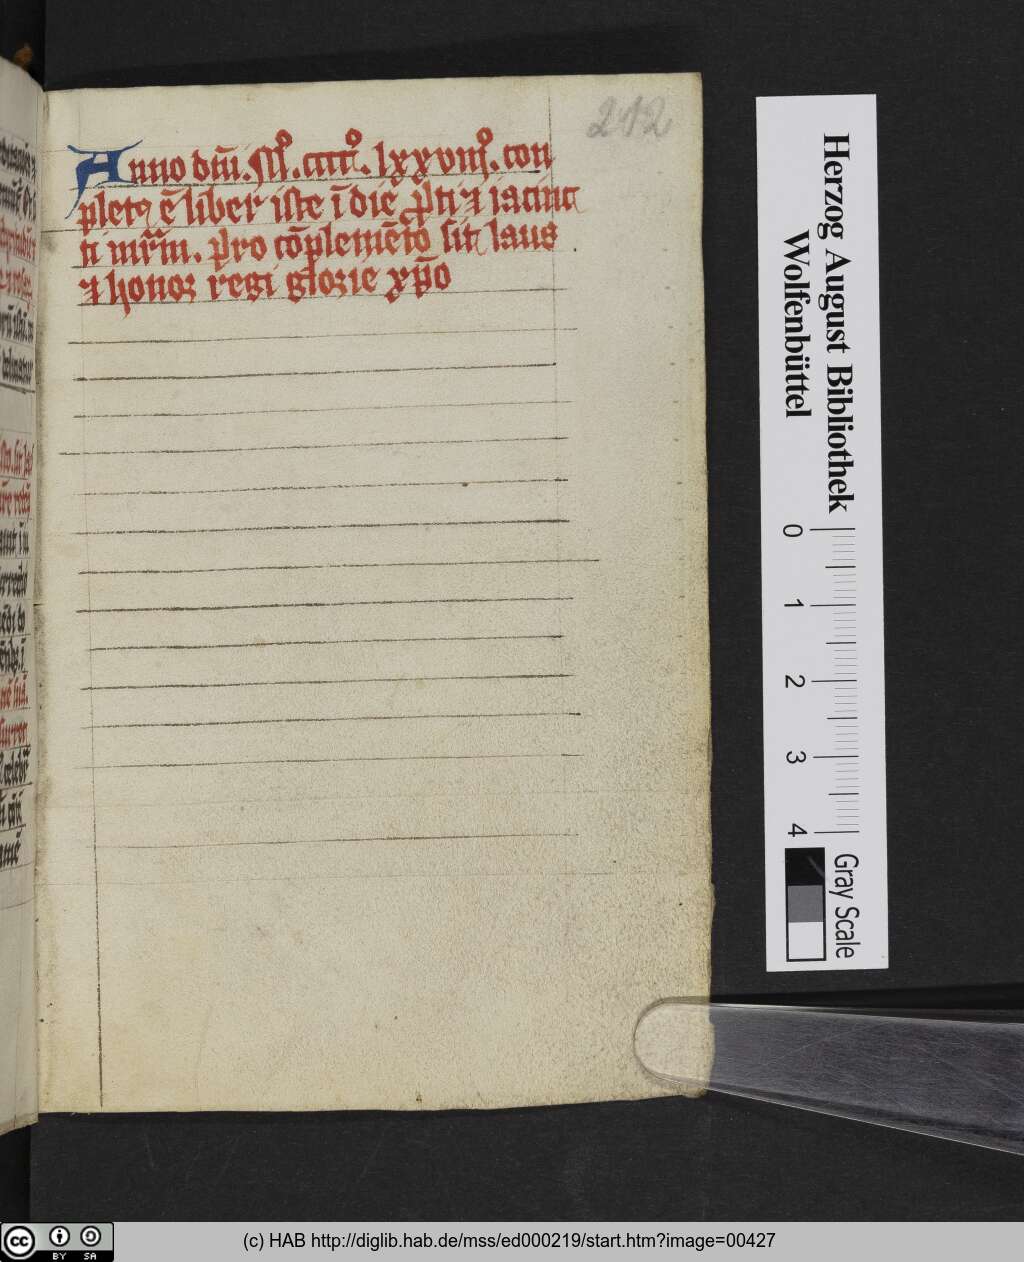 212
Anno dm̄. Mº. ccccº. lxxviiiº. con
pletꝰ ē liber iste ī die ꝓti ⁊ iacinc
ti mr̄m. ꝓro cō̄plemēto sit laus
⁊ honor regi glorie xp̄o
Herzog August Bibliothek
Wolfenbüttel
0 1 2 3 4
Gray Scale
(c) HAB http://diglib.hab.de/mss/ed000219/start.htm?image=00427
cc BY SA